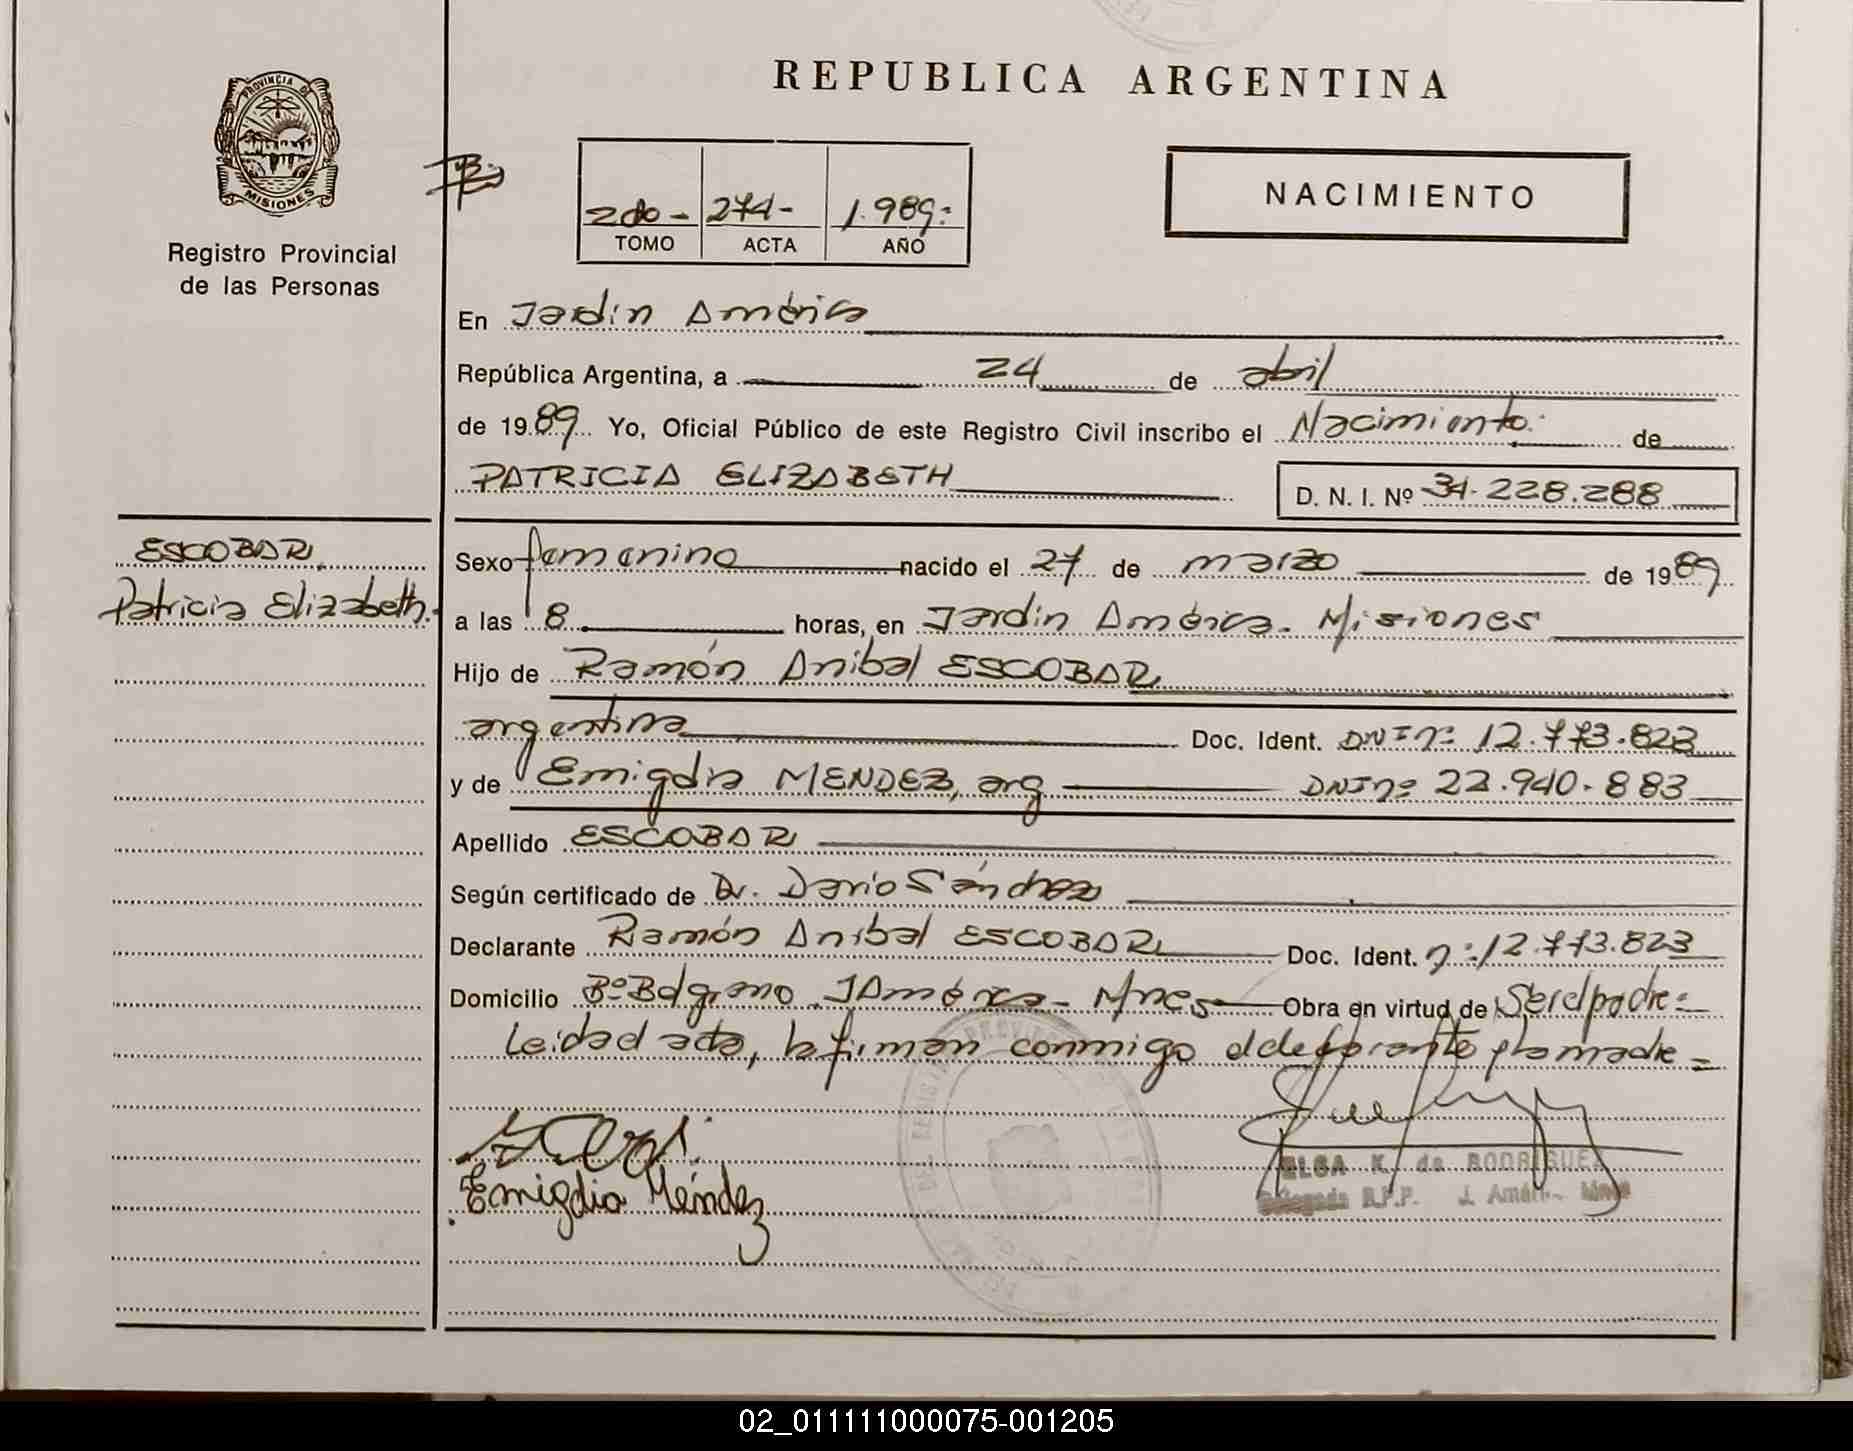 REPUBLICA ARGENTINA
PROVINCIA DE
MISIONES
Registro Provincial
de las Personas
2do - 274 - 1.989 -
TOMO ACTA AÑO
NACIMIENTO
En Jardín América
República Argentina, a 24 de abril
de 1989 Yo, Oficial Público de este Registro Civil inscribo el Nacimiento de
PATRICIA ELIZABETH D. N. I. Nº 34.228.288
ESCOBAR,
Patricia Elizabeth.
Sexo femenino nacido el 27 de marzo de 1989
a las 8 horas, en Jardín América - Misiones
Hijo de Ramón Anibal ESCOBAR
argentina Doc. Ident. DNI nº 12.773.823
y de Emigdia MENDEZ, arg DNI nº 22.940.883
Apellido ESCOBAR
Según certificado de Dr. Dario Sánchez
Declarante Ramón Anibal ESCOBAR Doc. Ident. nº 12.773.823
Domicilio Bº Belgrano. J América - Mnes Obra en virtud de Ser el padre =
Leida el acta, la firman conmigo el declarante y la madre =
Emigdia Méndez
ELSA K. de RODRIGUEZ
Delegada R.P.P. J. Amér. - Mnes
02_011111000075-001205